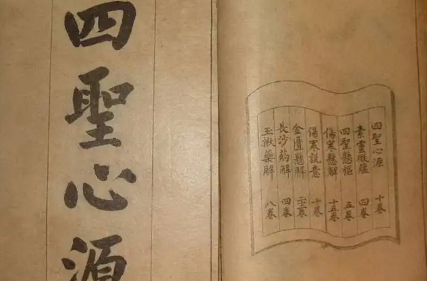 四聖心源
四聖心源 十卷
素靈微蘊 四卷
四聖懸樞 五卷
傷寒懸解 十五卷
傷寒說意 十卷
金匱懸解 二十二卷
長沙葯解 四卷
玉楸藥解 八卷